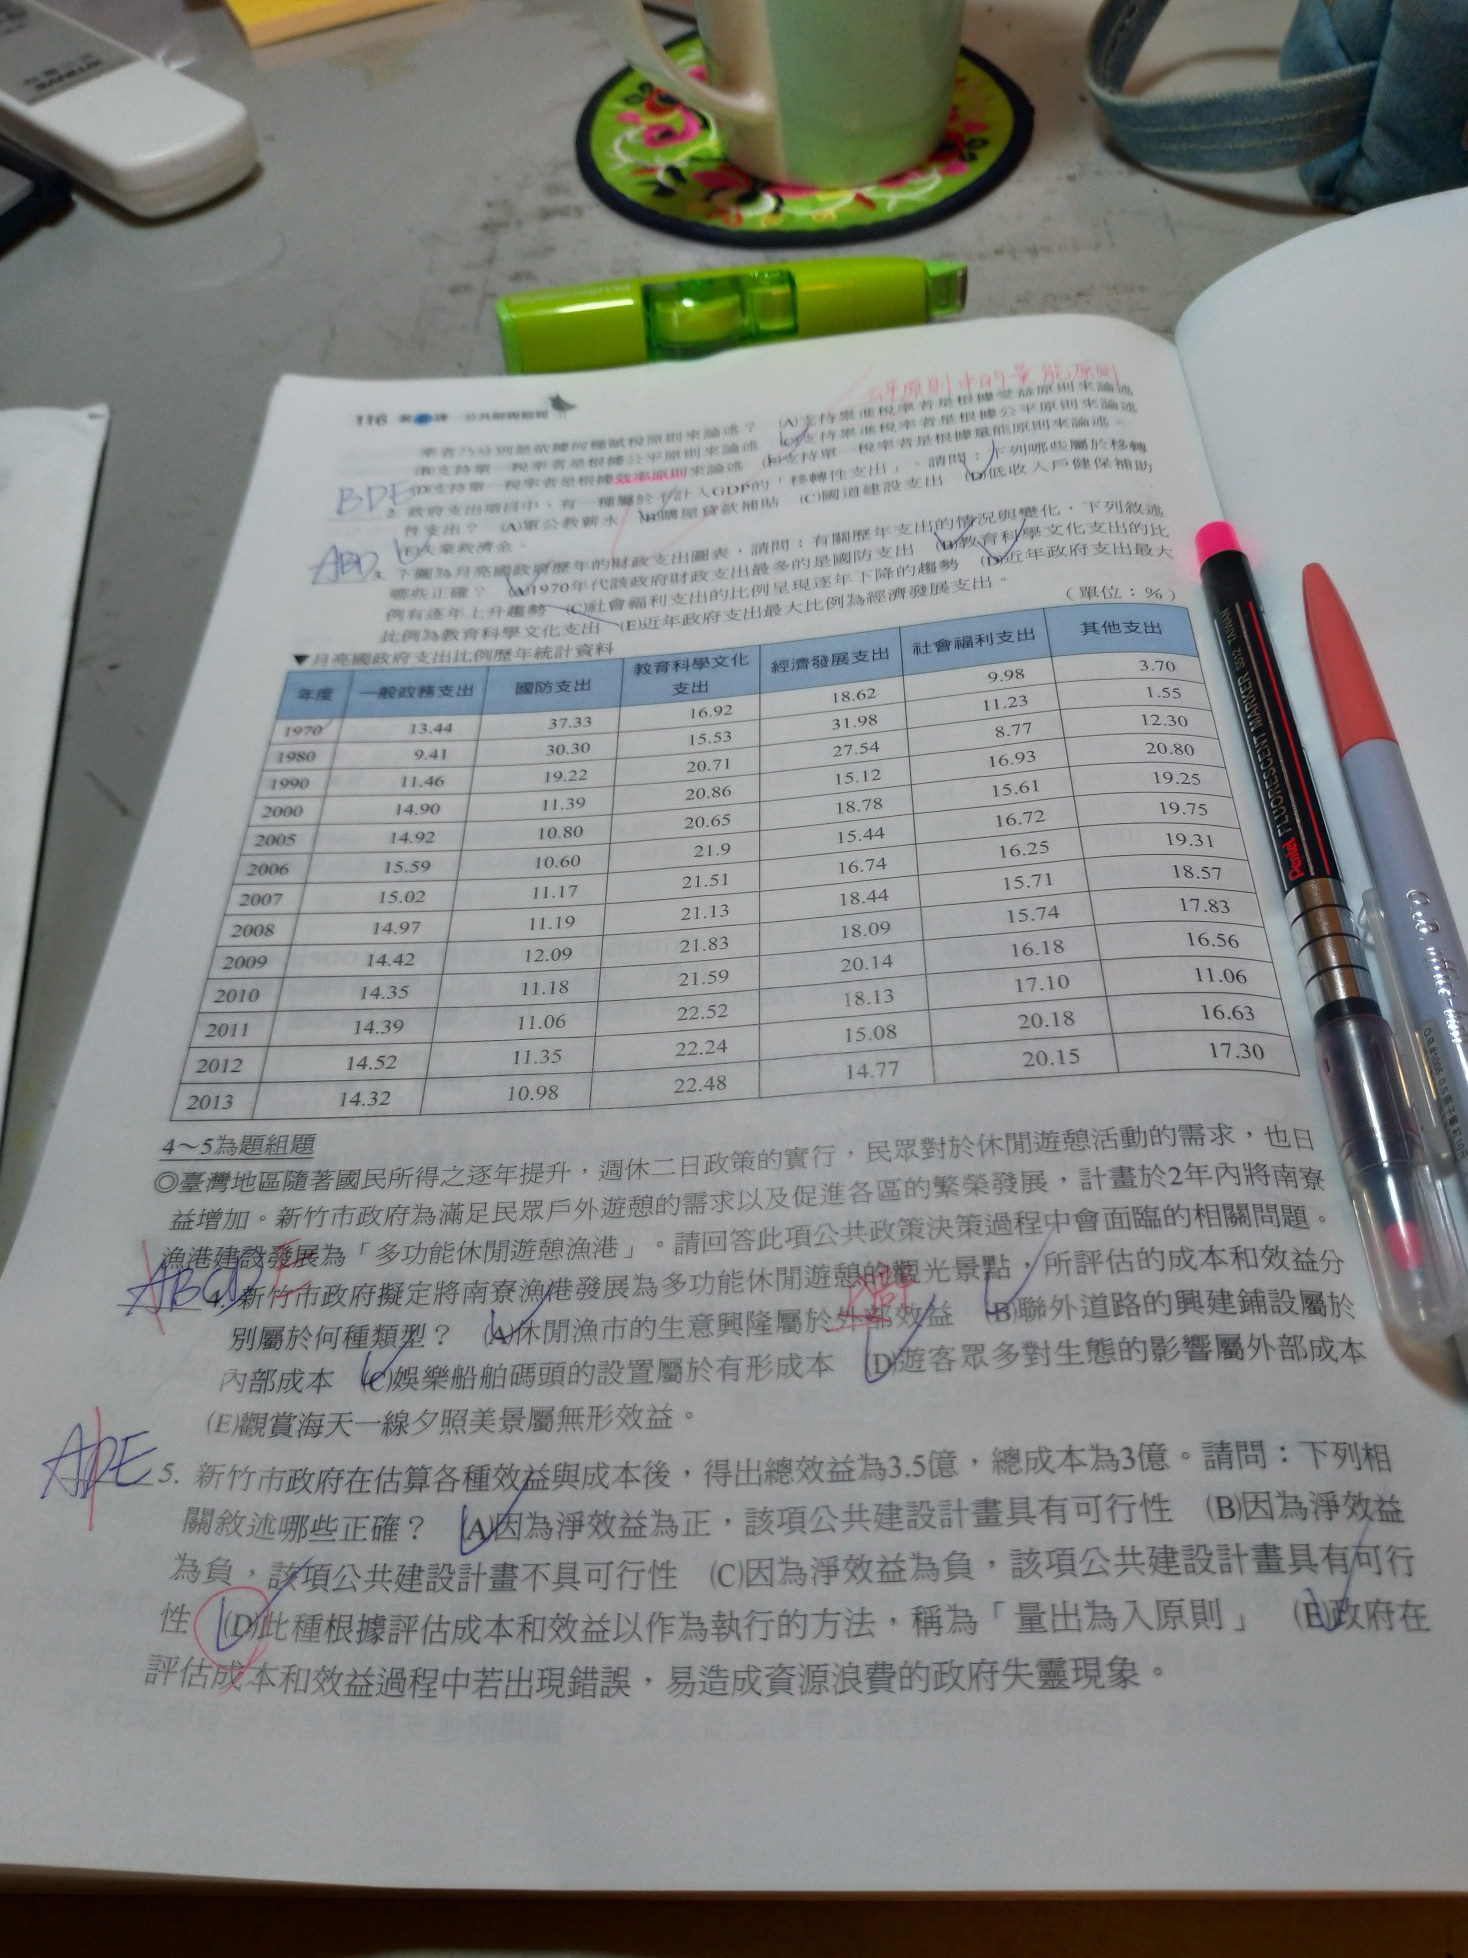 公平原則中的量能原則
116
率者乃分別是依據何種賦稅原則來論述？ (A)支持累進稅率者是根據受益原則來論述
(B)支持單一稅率者是根據公平原則來論述 (C)支持累進稅率者是根據公平原則來論述
(D)支持單一稅率者是根據效率原則來論述 (E)支持單一稅率者是根據量能原則來論述。
BDE 2. 政府支出項目中，有一種屬於不計入GDP的「移轉性支出」。請問：下列哪些屬於移轉
性支出？ (A)軍公教薪水 (B)購屋貸款補貼 (C)國道建設支出 (D)低收入戶健保補助
(E)失業救濟金。
ABD 3. 下圖為月亮國政府歷年的財政支出圖表，請問：有關歷年支出的情況與變化，下列敘述
哪些正確？ (A)1970年代該政府財政支出最多的是國防支出 (B)教育科學文化支出的比
例有逐年上升趨勢 (C)社會福利支出的比例呈現逐年下降的趨勢 (D)近年政府支出最大
比例為教育科學文化支出 (E)近年政府支出最大比例為經濟發展支出。
▼月亮國政府支出比例歷年統計資料 （單位：%）
年度 一般政務支出 國防支出 教育科學文化支出 經濟發展支出 社會福利支出 其他支出
1970 13.44 37.33 16.92 18.62 9.98 3.70
1980 9.41 30.30 15.53 31.98 11.23 1.55
1990 11.46 19.22 20.71 27.54 8.77 12.30
2000 14.90 11.39 20.86 15.12 16.93 20.80
2005 14.92 10.80 20.65 18.78 15.61 19.25
2006 15.59 10.60 21.9 15.44 16.72 19.75
2007 15.02 11.17 21.51 16.74 16.25 19.31
2008 14.97 11.19 21.13 18.44 15.71 18.57
2009 14.42 12.09 21.83 18.09 15.74 17.83
2010 14.35 11.18 21.59 20.14 16.18 16.56
2011 14.39 11.06 22.52 18.13 17.10 11.06
2012 14.52 11.35 22.24 15.08 20.18 16.63
2013 14.32 10.98 22.48 14.77 20.15 17.30
4～5為題組題
◎臺灣地區隨著國民所得之逐年提升，週休二日政策的實行，民眾對於休閒遊憩活動的需求，也日
益增加。新竹市政府為滿足民眾戶外遊憩的需求以及促進各區的繁榮發展，計畫於2年內將南寮
漁港建設發展為「多功能休閒遊憩漁港」。請回答此項公共政策決策過程中會面臨的相關問題。
ABCDE 4. 新竹市政府擬定將南寮漁港發展為多功能休閒遊憩的觀光景點，所評估的成本和效益分
別屬於何種類型？ (A)休閒漁市的生意興隆屬於外部效益 (B)聯外道路的興建鋪設屬於
內部成本 (C)娛樂船舶碼頭的設置屬於有形成本 (D)遊客眾多對生態的影響屬外部成本
(E)觀賞海天一線夕照美景屬無形效益。
ADE 5. 新竹市政府在估算各種效益與成本後，得出總效益為3.5億，總成本為3億。請問：下列相
關敘述哪些正確？ (A)因為淨效益為正，該項公共建設計畫具有可行性 (B)因為淨效益
為負，該項公共建設計畫不具可行性 (C)因為淨效益為負，該項公共建設計畫具有可行
性 (D)此種根據評估成本和效益以作為執行的方法，稱為「量出為入原則」 (E)政府在
評估成本和效益過程中若出現錯誤，易造成資源浪費的政府失靈現象。
Pentel FLUORESCENT MARKER S512 TAIWAN